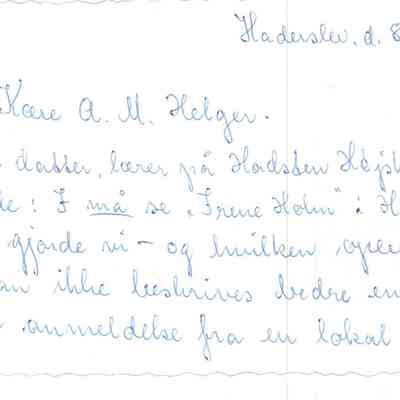 Haderslev, d. 8
Kære A. M. Helger.
datter, lærer på Hadsten Højs
de: I må se "Irene Holm" i H
gjorde vi - og hvilken ople
an ikke beskrives bedre en
anmeldelse fra en lokal